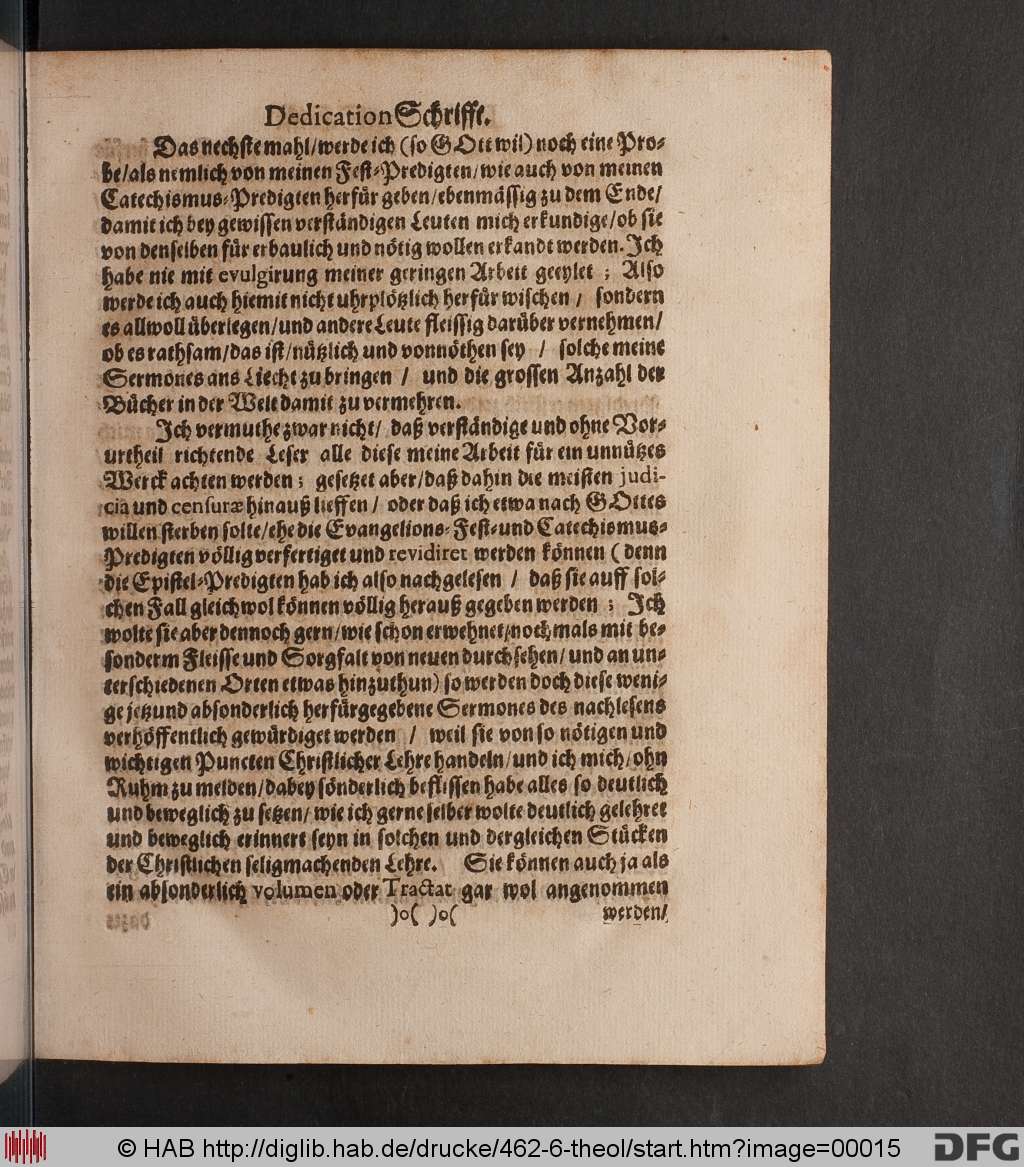 Dedication Schrifft.
Das nechste mahl/werde ich (so GOtt wil) noch eine Pro-
be/als nemlich von meinen Fest-Predigten/wie auch von meinen
Catechismus-Predigten herfür geben/ebenmässig zu dem Ende/
damit ich bey gewissen verständigen Leuten mich erkundige/ob sie
von denselben für erbaulich und nötig wollen erkandt werden. Ich
habe nie mit evulgirung meiner geringen Arbeit geeylet; Also
werde ich auch hiemit nicht uhrplötzlich herfür wischen / sondern
es allwoll überlegen/und andere Leute fleissig darüber vernehmen/
ob es rathsam/das ist/nützlich und vonnöthen sey / solche meine
Sermones ans Liecht zu bringen / und die grossen Anzahl der
Bücher in der Welt damit zu vermehren.
Ich vermuthe zwar nicht/ daß verständige und ohne Vor-
urtheil richtende Leser alle diese meine Arbeit für ein unnützes
Werck achten werden; gesetzet aber/daß dahin die meisten judi-
cia und censuræ hinauß lieffen / oder daß ich etwa nach GOttes
willen sterben solte/ehe die Evangelions-Fest-und Catechismus-
Predigten völlig verfertiget und revidiret werden können (denn
die Epistel-Predigten hab ich also nachgelesen / daß sie auff sol-
chen Fall gleichwol können völlig herauß gegeben werden; Ich
wolte sie aber dennoch gern/wie schon erwehnet/nochmals mit be-
sonderm Fleisse und Sorgfalt von neuen durchsehen/und an un-
terschiedenen Orten etwas hinzuthun) so werden doch diese weni-
ge jetzund absonderlich herfürgegebene Sermones des nachlesens
verhöffentlich gewürdiget werden / weil sie von so nötigen und
wichtigen Puncten Christlicher Lehre handeln/und ich mich/ohn
Ruhm zu melden/dabey sönderlich beflissen habe alles so deutlich
und beweglich zu setzen/wie ich gerne selber wolte deutlich gelehret
und beweglich erinnert seyn in solchen und dergleichen Stücken
der Christlichen seligmachenden Lehre. Sie können auch ja als
ein absonderlich volumen oder Tractat gar wol angenommen
)o( )o( werden/
© HAB http://diglib.hab.de/drucke/462-6-theol/start.htm?image=00015
DFG